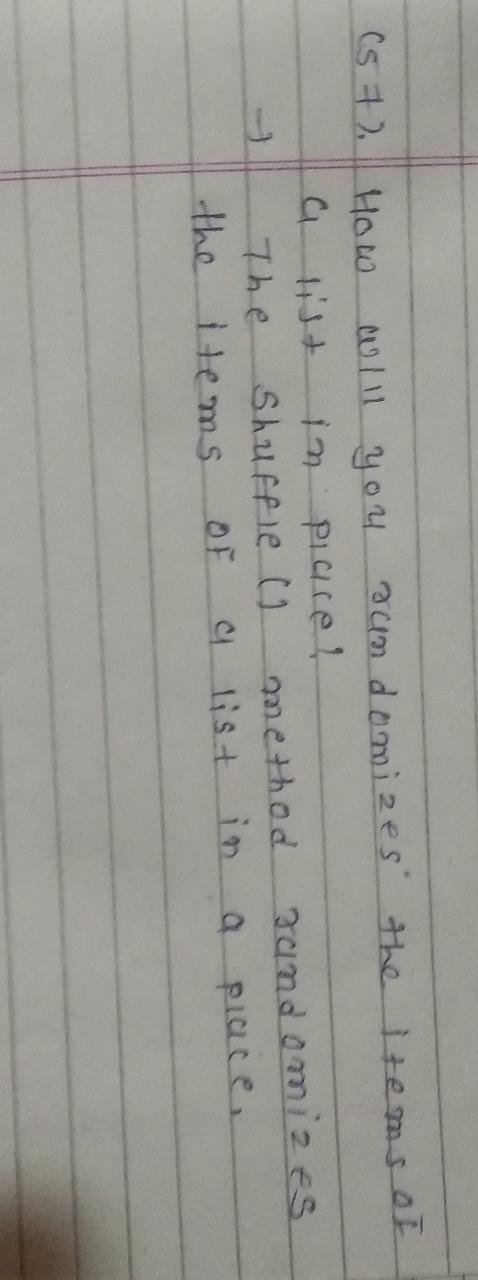 (57). How will you randomizes the items of
a list in place?
→ The shuffle () method randomizes
the items of a list in a place.